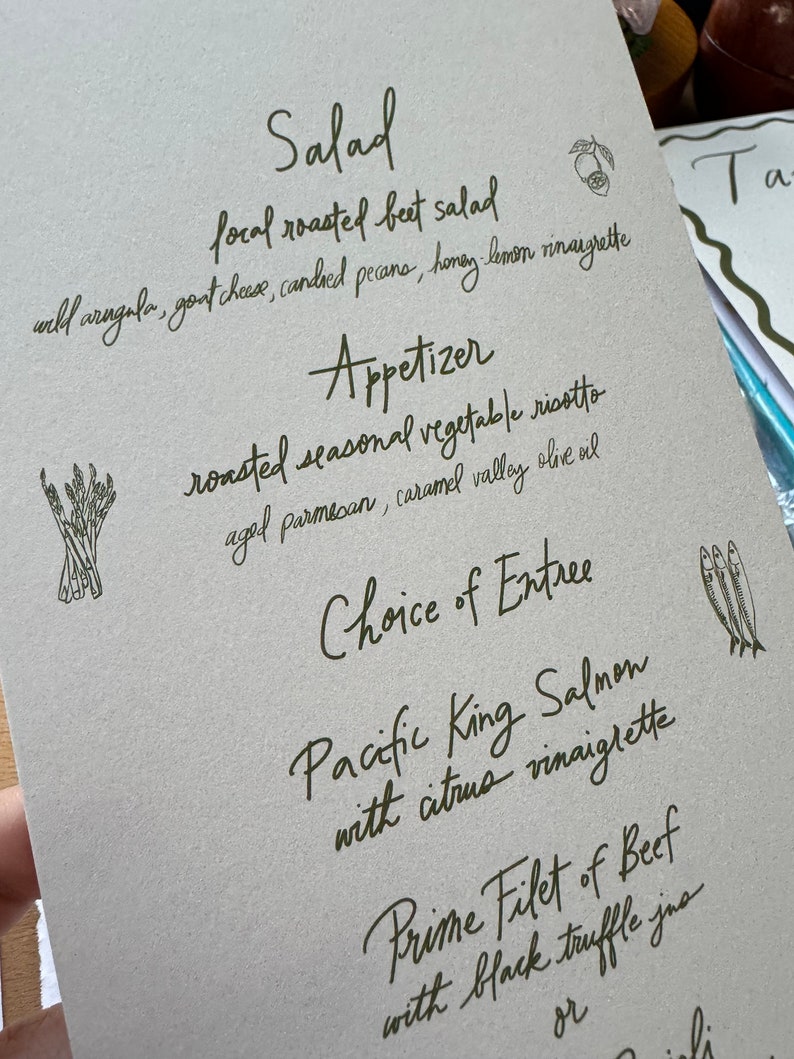 Salad
local roasted beet salad
wild arugula, goat cheese, candied pecans, honey-lemon vinaigrette
Appetizer
roasted seasonal vegetable risotto
aged parmesan, caramel valley olive oil
Choice of Entree
Pacific King Salmon
with citrus vinaigrette
Prime Filet of Beef
with black truffle jus
or